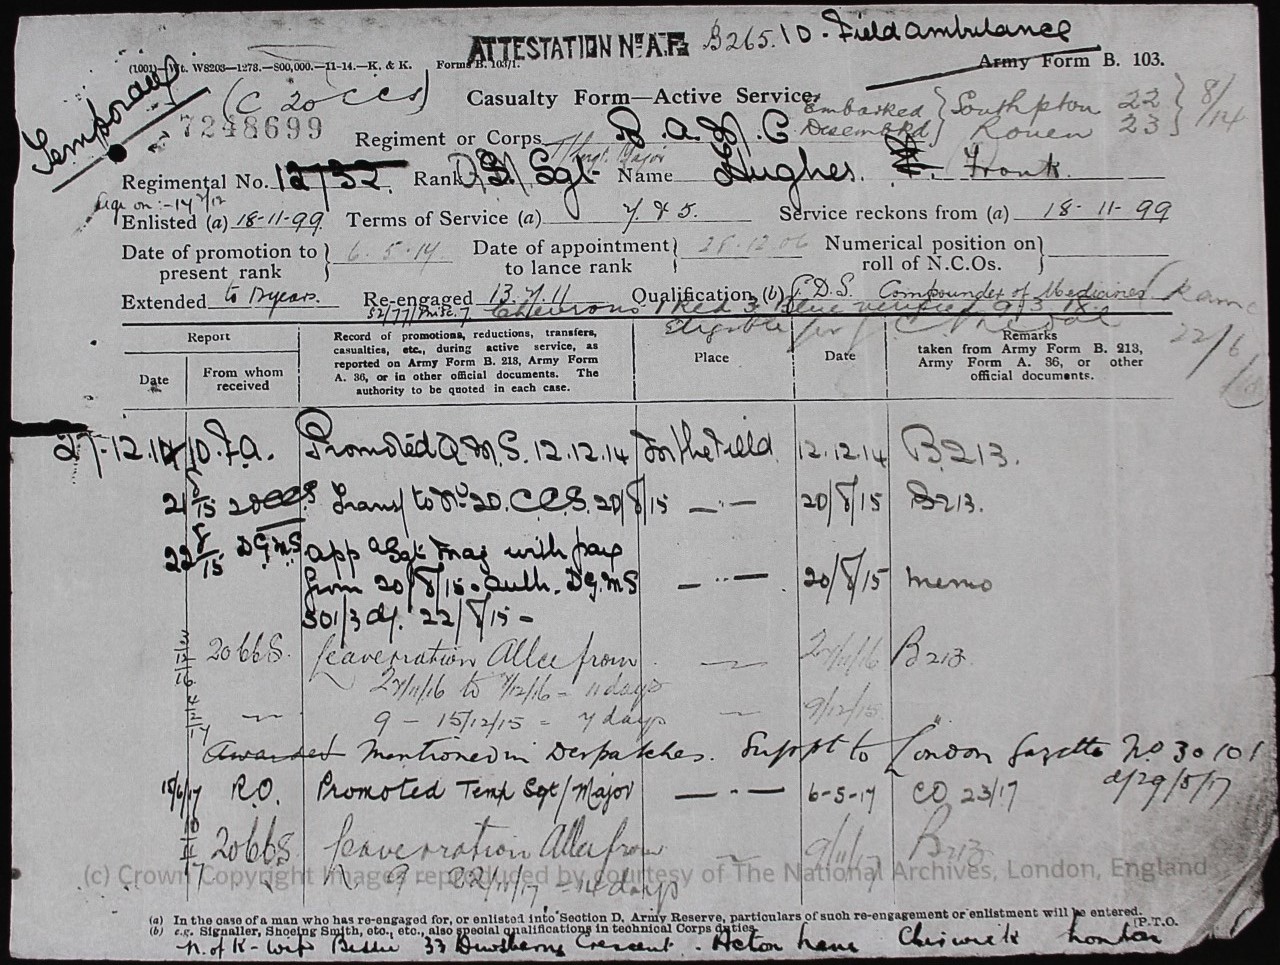 ATTESTATION No. A.F. B265. 10. Field ambulance
(1001) Wt. W8203—1278.—800,000.—11-14.—K. & K. Forms B. 103/1.
Army Form B. 103.
Temporary
(C 20 CCS)
Casualty Form—Active Service.
Embarked Southpton 22 8/14
Disembkd Rouen 23
7248699
Regiment or Corps R.A.M.C
Regimental No. 12732. Rank Sgt. Name Hughes. F. Frank.
Enlisted (a) 18-11-99 Terms of Service (a) 7 & 5. Service reckons from (a) 18-11-99
Date of promotion to present rank 6.5.14 Date of appointment to lance rank 28.12.06 Numerical position on roll of N.C.Os.
Extended to 12 years. Re-engaged 13.7.11 Qualification (b) Compounder of Medicines
Chevrons 1 Red 3 Blue verified 9/3/18
Eligible for
22/6
Report
Date
From whom received
Record of promotions, reductions, transfers, casualties, etc., during active service, as reported on Army Form B. 213, Army Form A. 36, or in other official documents. The authority to be quoted in each case.
Place
Date
Remarks
taken from Army Form B. 213, Army Form A. 36, or other official documents.
27-12.14 10. F.A. Promoted Q.M.S. 12.12.14 In the Field 12.12.14 B213.
21/8/15 20 CCS Transf to No 20. C.C.S. 20/8/15 —"— 20/8/15 B213.
22/8/15 DGMS app a Sgt Maj with pay
from 20/8/15. auth. DGMS —"— 20/8/15 memo
301/3 d/. 22/8/15 -
3/12/16 20 CCS. Leave ration Allce from — 27/11/16 B213
27/11/16 to 7/12/16 = 11 days
9 - 15/12/15 = 7 days — 9/12/15
Awarded Mentioned in Despatches. Supplt to London Gazette No. 30101
d/29/5/17
15/6/17 R.O. Promoted Temp Sgt/Major —"— 6-5-17 CO 23/17
20 CCS Leave ration Allce from — 9/11/17 B213
9 - 22/11/17 = 14 days
(c) Crown Copyright Images reproduced by courtesy of The National Archives, London, England
(a) In the case of a man who has re-engaged for, or enlisted into Section D. Army Reserve, particulars of such re-engagement or enlistment will be entered.
(b) e.g. Signaller, Shoeing Smith, etc., etc., also special qualifications in technical Corps duties. [P.T.O.
N. of K- Wife 33 Crescent. Acton Lane Chiswick London